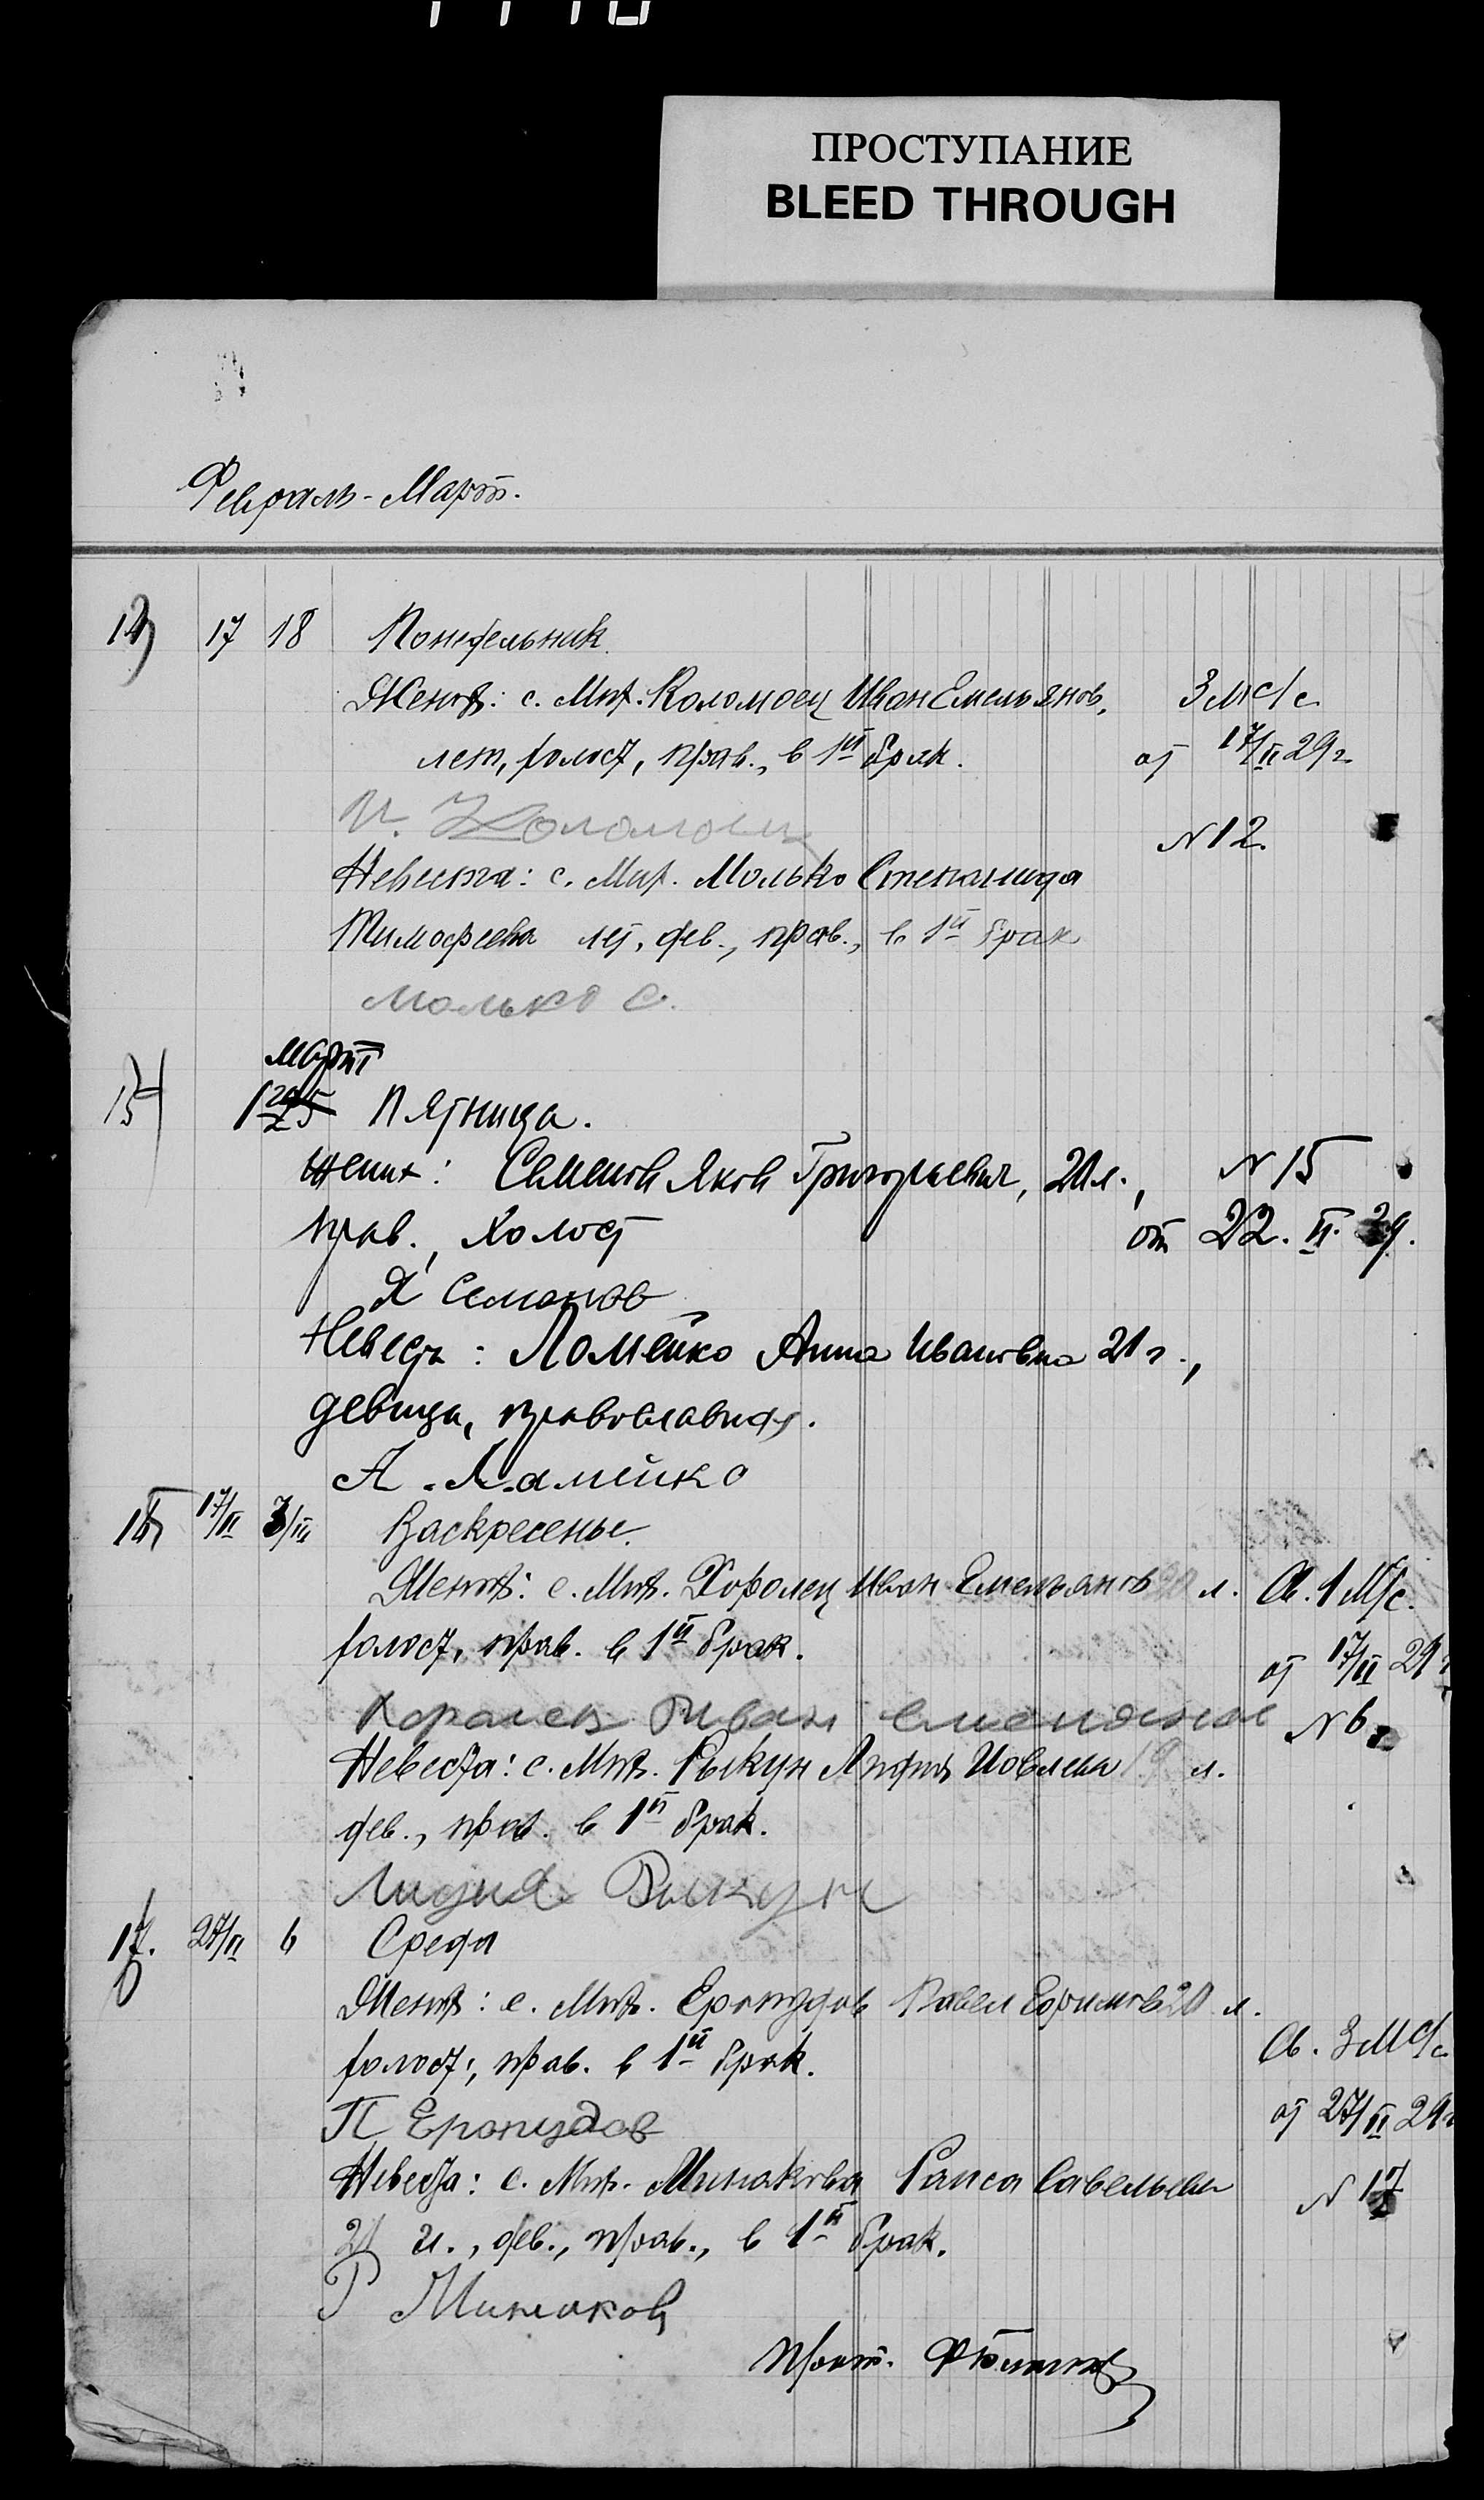 ПРОСТУПАНИЕ
BLEED THROUGH
Февраль-Март.
17 18 Понедельник.
Жених: с. Мих. Коломоец Иван Емельянов, 3 м с/с
лет, холост, прав., в 1й брак. от 17/II 29 г.
И. Коломоец
N 12.
Невеста: с. Мих. Молько Степанида
Тимофеева лет, дев., прав., в 1й брак
Молько С.
Март
Пятница.
Жених: Семенов Яков Григорьевич, 20 л., N 15
прав., холост от 22. II. 29.
Я Семенов
Невеста: Ломейко Анна Ивановна 21 г.,
девица, православная.
А. Ламейко
17/II 3/III Воскресенье.
Жених: с. Мих. Хоролец Иван Емельянов л. Св. 1 М/с.
холост, прав. в 1й брак. от 17/II 29 г
Иван
N 6
Невеста: с. Мих. Рыкун Лидия Иовлева 19 л.
дев., прав. в 1й брак.
Лидия Рыкун
17. 27/II 6 Среда
Жених: с. Мих. Еропудов Павел Ефимов 20 л.
холост, прав. в 1й брак. Св. 3 М с/с
П Еропудов от 27/II 29 г
Невеста: с. Мих. Минакова Раиса Савельева
N 17
21 г., дев., прав., в 1й брак.
Р Минаков
Прот.